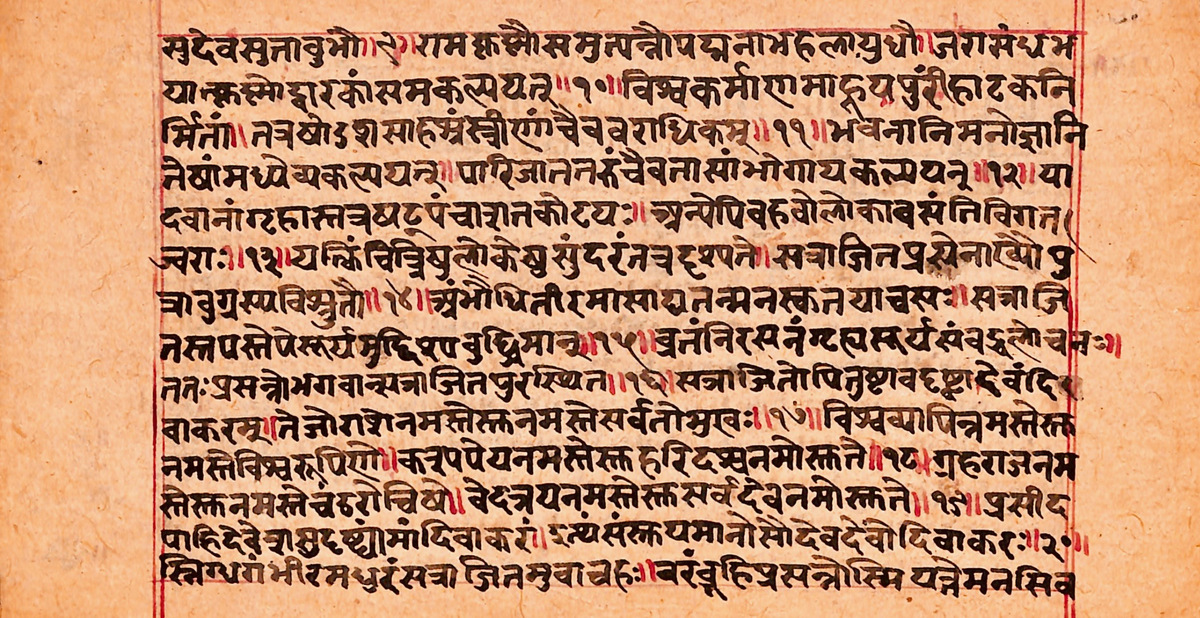 सुदेवसुतावुभौ॥९॥रामकृष्णौसमुत्पन्नौपद्मनाभहलायुधौ॥जरासंधभ
यात्कृष्णोद्वारकांसमकल्पयत्॥१०॥विश्वकर्माणमाहूयपुरींहाटकनि
र्मितां॥तत्रषोडशसाहस्रंस्त्रीणांचैववराधिकम्॥११॥भवनानिमनोज्ञानि
तेषांमध्येव्यकल्पयत्॥पारिजाततरुंचैवतासांभोगायकल्पयत्॥१२॥या
दवानांगृहास्तत्रषट्पंचाशतकोटयः॥अन्येपिबहवोलोकावसंतिविगत
ज्वराः॥१३॥यत्किंचित्त्रिषुलोकेषुसुंदरंतत्रदृश्यते॥सत्राजितप्रसेनाख्यौपु
त्रावुग्रस्यविश्रुतौ॥१४॥अंभोधितीरमासाद्यतन्मनस्कतयाचसः॥सत्राजि
तस्तपस्तेपेसूर्यमुद्दिश्यबुद्धिमान्॥१५॥व्रतंनिरसनंगृह्यसूर्यसंबद्धलोचनः॥
ततःप्रसन्नोभगवान्सत्राजितपुरस्थित॥१६॥सत्राजितोपितुष्टावदृष्ट्वादेवंदि
वाकरम्॥तेजोराशेनमस्तेस्तुनमस्तेसर्वतोमुख॥१७॥विश्वव्यापिन्नमस्तेस्तु
नमस्तेविश्वरूपिणे॥कश्यपेयनमस्तेस्तुहरिदश्वनमोस्तुते॥१८॥ग्रहराजनम
स्तेस्तुनमस्तेचंडरोचिषे॥वेदत्रयनमस्तेस्तुसर्वदेवनमोस्तुते॥१९॥प्रसीद
पाहिदेवेशसुदृष्ट्यामांदिवाकर॥इत्थंसंस्तूयमानोसौदेवदेवोदिवाकरः॥२०॥
स्निग्धगंभीरमधुरंसत्राजितमुवाचह॥वरंब्रूहिप्रसन्नोस्मियत्तेमनसिव